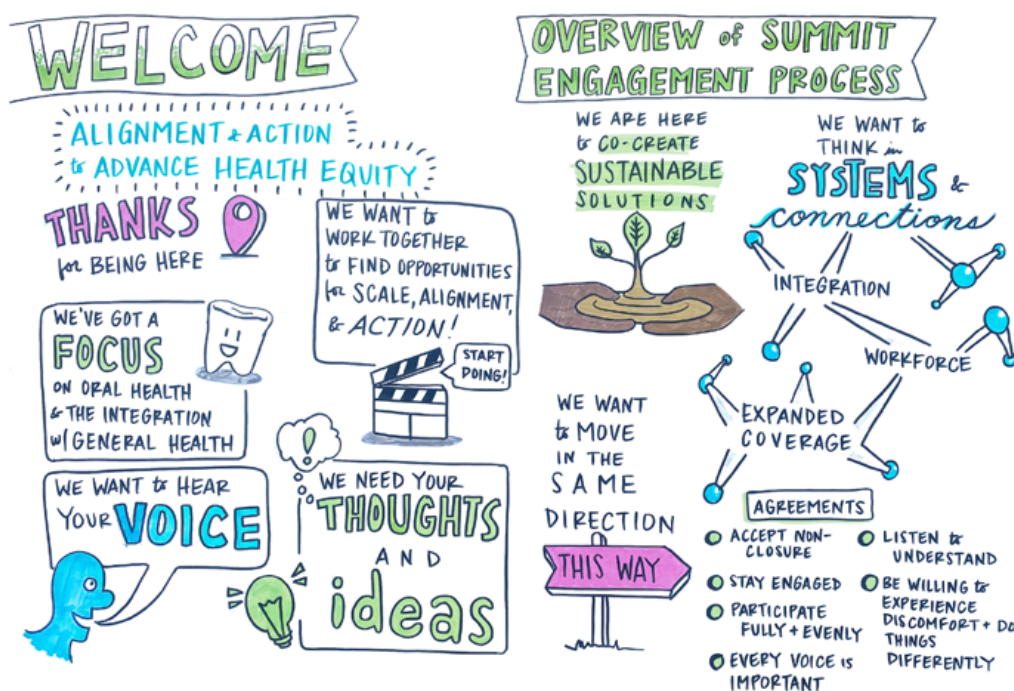 WELCOME
ALIGNMENT & ACTION
to ADVANCE HEALTH EQUITY
THANKS
for BEING HERE
WE WANT to
WORK TOGETHER
to FIND OPPORTUNITIES
for SCALE, ALIGNMENT,
& ACTION!
START
DOING!
WE'VE GOT A
FOCUS
ON ORAL HEALTH
& THE INTEGRATION
w/ GENERAL HEALTH
WE WANT to HEAR
YOUR VOICE
!
WE NEED YOUR
THOUGHTS
AND
ideas
OVERVIEW of SUMMIT
ENGAGEMENT PROCESS
WE ARE HERE
to CO-CREATE
SUSTAINABLE
SOLUTIONS
WE WANT to
THINK in
SYSTEMS &
connections
INTEGRATION
WORKFORCE
EXPANDED
COVERAGE
WE WANT
to MOVE
IN THE
SAME
DIRECTION
THIS WAY
AGREEMENTS
ACCEPT NON-
CLOSURE
STAY ENGAGED
PARTICIPATE
FULLY + EVENLY
EVERY VOICE IS
IMPORTANT
LISTEN to
UNDERSTAND
BE WILLING to
EXPERIENCE
DISCOMFORT + DO
THINGS
DIFFERENTLY